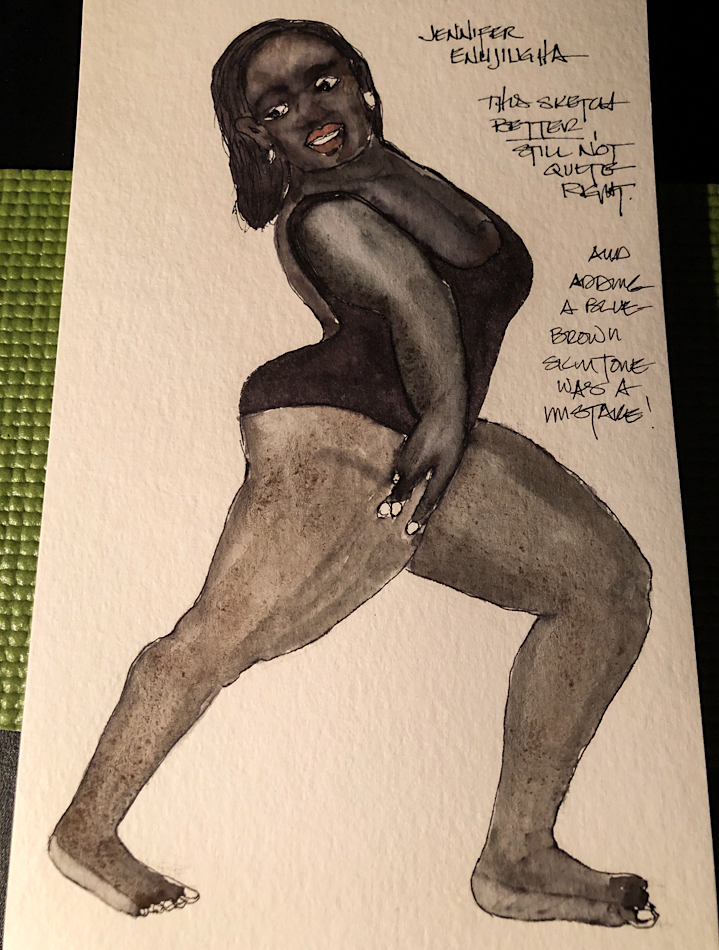 JENNIFER
ENUJIUGHA
THIS SKETCH
BETTER,
STILL NOT
QUITE
RIGHT.
AND
ADDING
A BLUE
BROWN
SKINTONE
WAS A
MISTAKE!